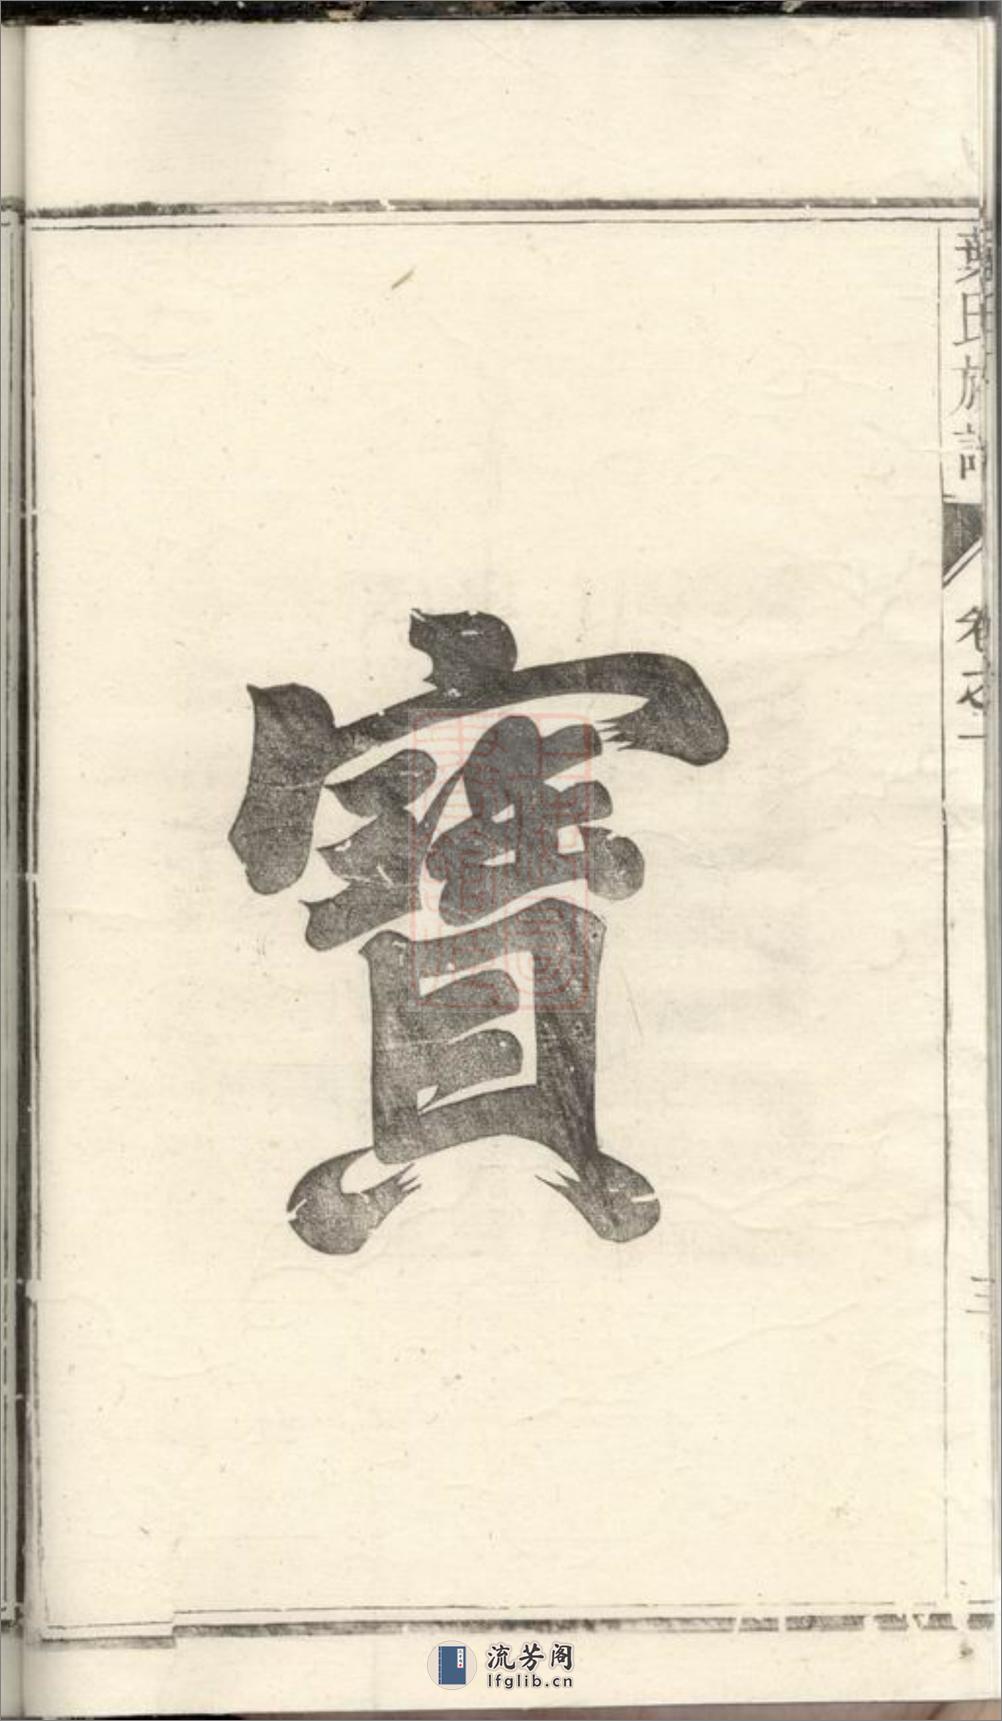 葉氏族譜
卷之一
三
寶
流芳阁
lfglib.cn